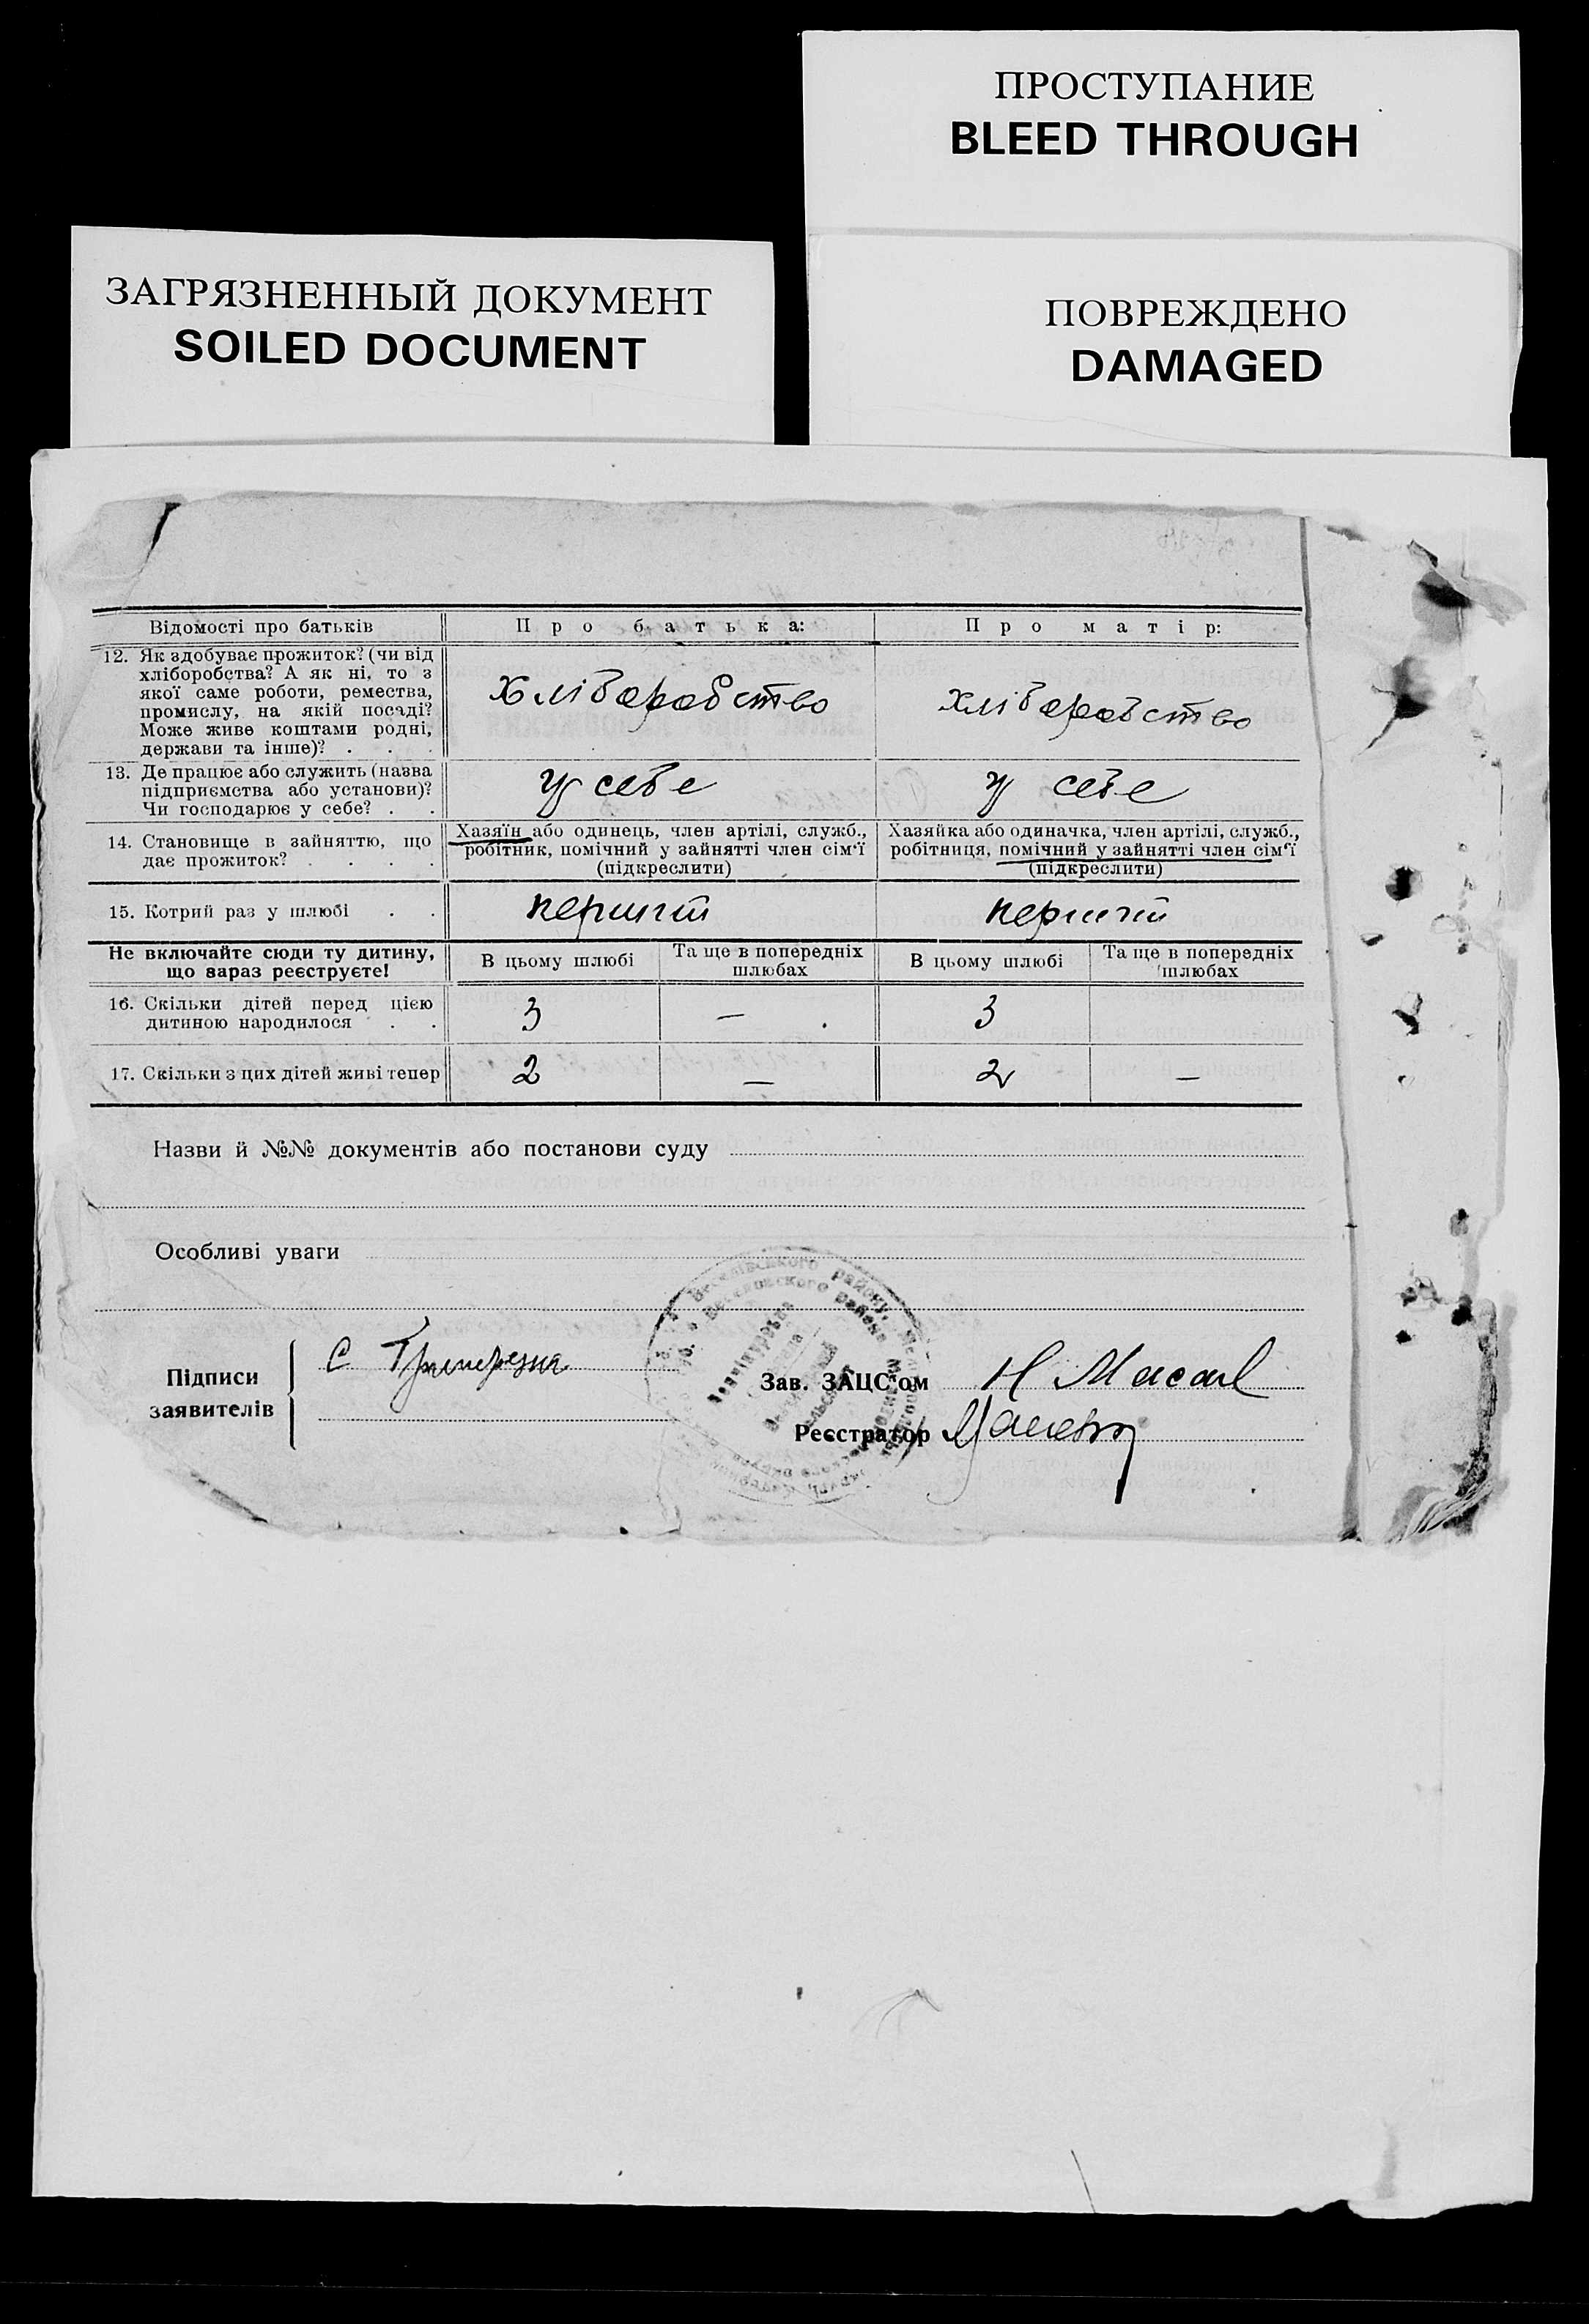 ПРОСТУПАНИЕ
BLEED THROUGH
ЗАГРЯЗНЕННЫЙ ДОКУМЕНТ
SOILED DOCUMENT
ПОВРЕЖДЕНО
DAMAGED
Відомості про батьків Про батька: Про матір:
12. Як здобуває прожиток? (чи від
хліборобства? А як ні, то з
якої саме роботи, ремества,
промислу, на якій посаді?
Може живе коштами родні,
держави та інше)? . . .
Хліборобство хліборобство
13. Де працює або служить (назва
підприємства або установи)?
Чи господарює у себе? . .
у себе у себе
14. Становище в зайняттю, що
дає прожиток? . . . .
Хазяїн або одинець, член артілі, служб.,
робітник, помічний у зайнятті член сім'ї
(підкреслити)
Хазяйка або одиначка, член артілі, служб.,
робітниця, помічний у зайнятті член сім'ї
(підкреслити)
15. Котрий раз у шлюбі . . перший перший
Не включайте сюди ту дитину,
що зараз реєструєте!
В цьому шлюбі
Та ще в попередніх
шлюбах
В цьому шлюбі
Та ще в попередніх
шлюбах
16. Скільки дітей перед цією
дитиною народилося . .
3 — 3
17. Скільки з цих дітей живі тепер 2 — 2 —
Назви й №№ документів або постанови суду
Особливі уваги
Підписи
заявителів
С
Зав. ЗАЦС'ом Н
Реєстратор
району
района